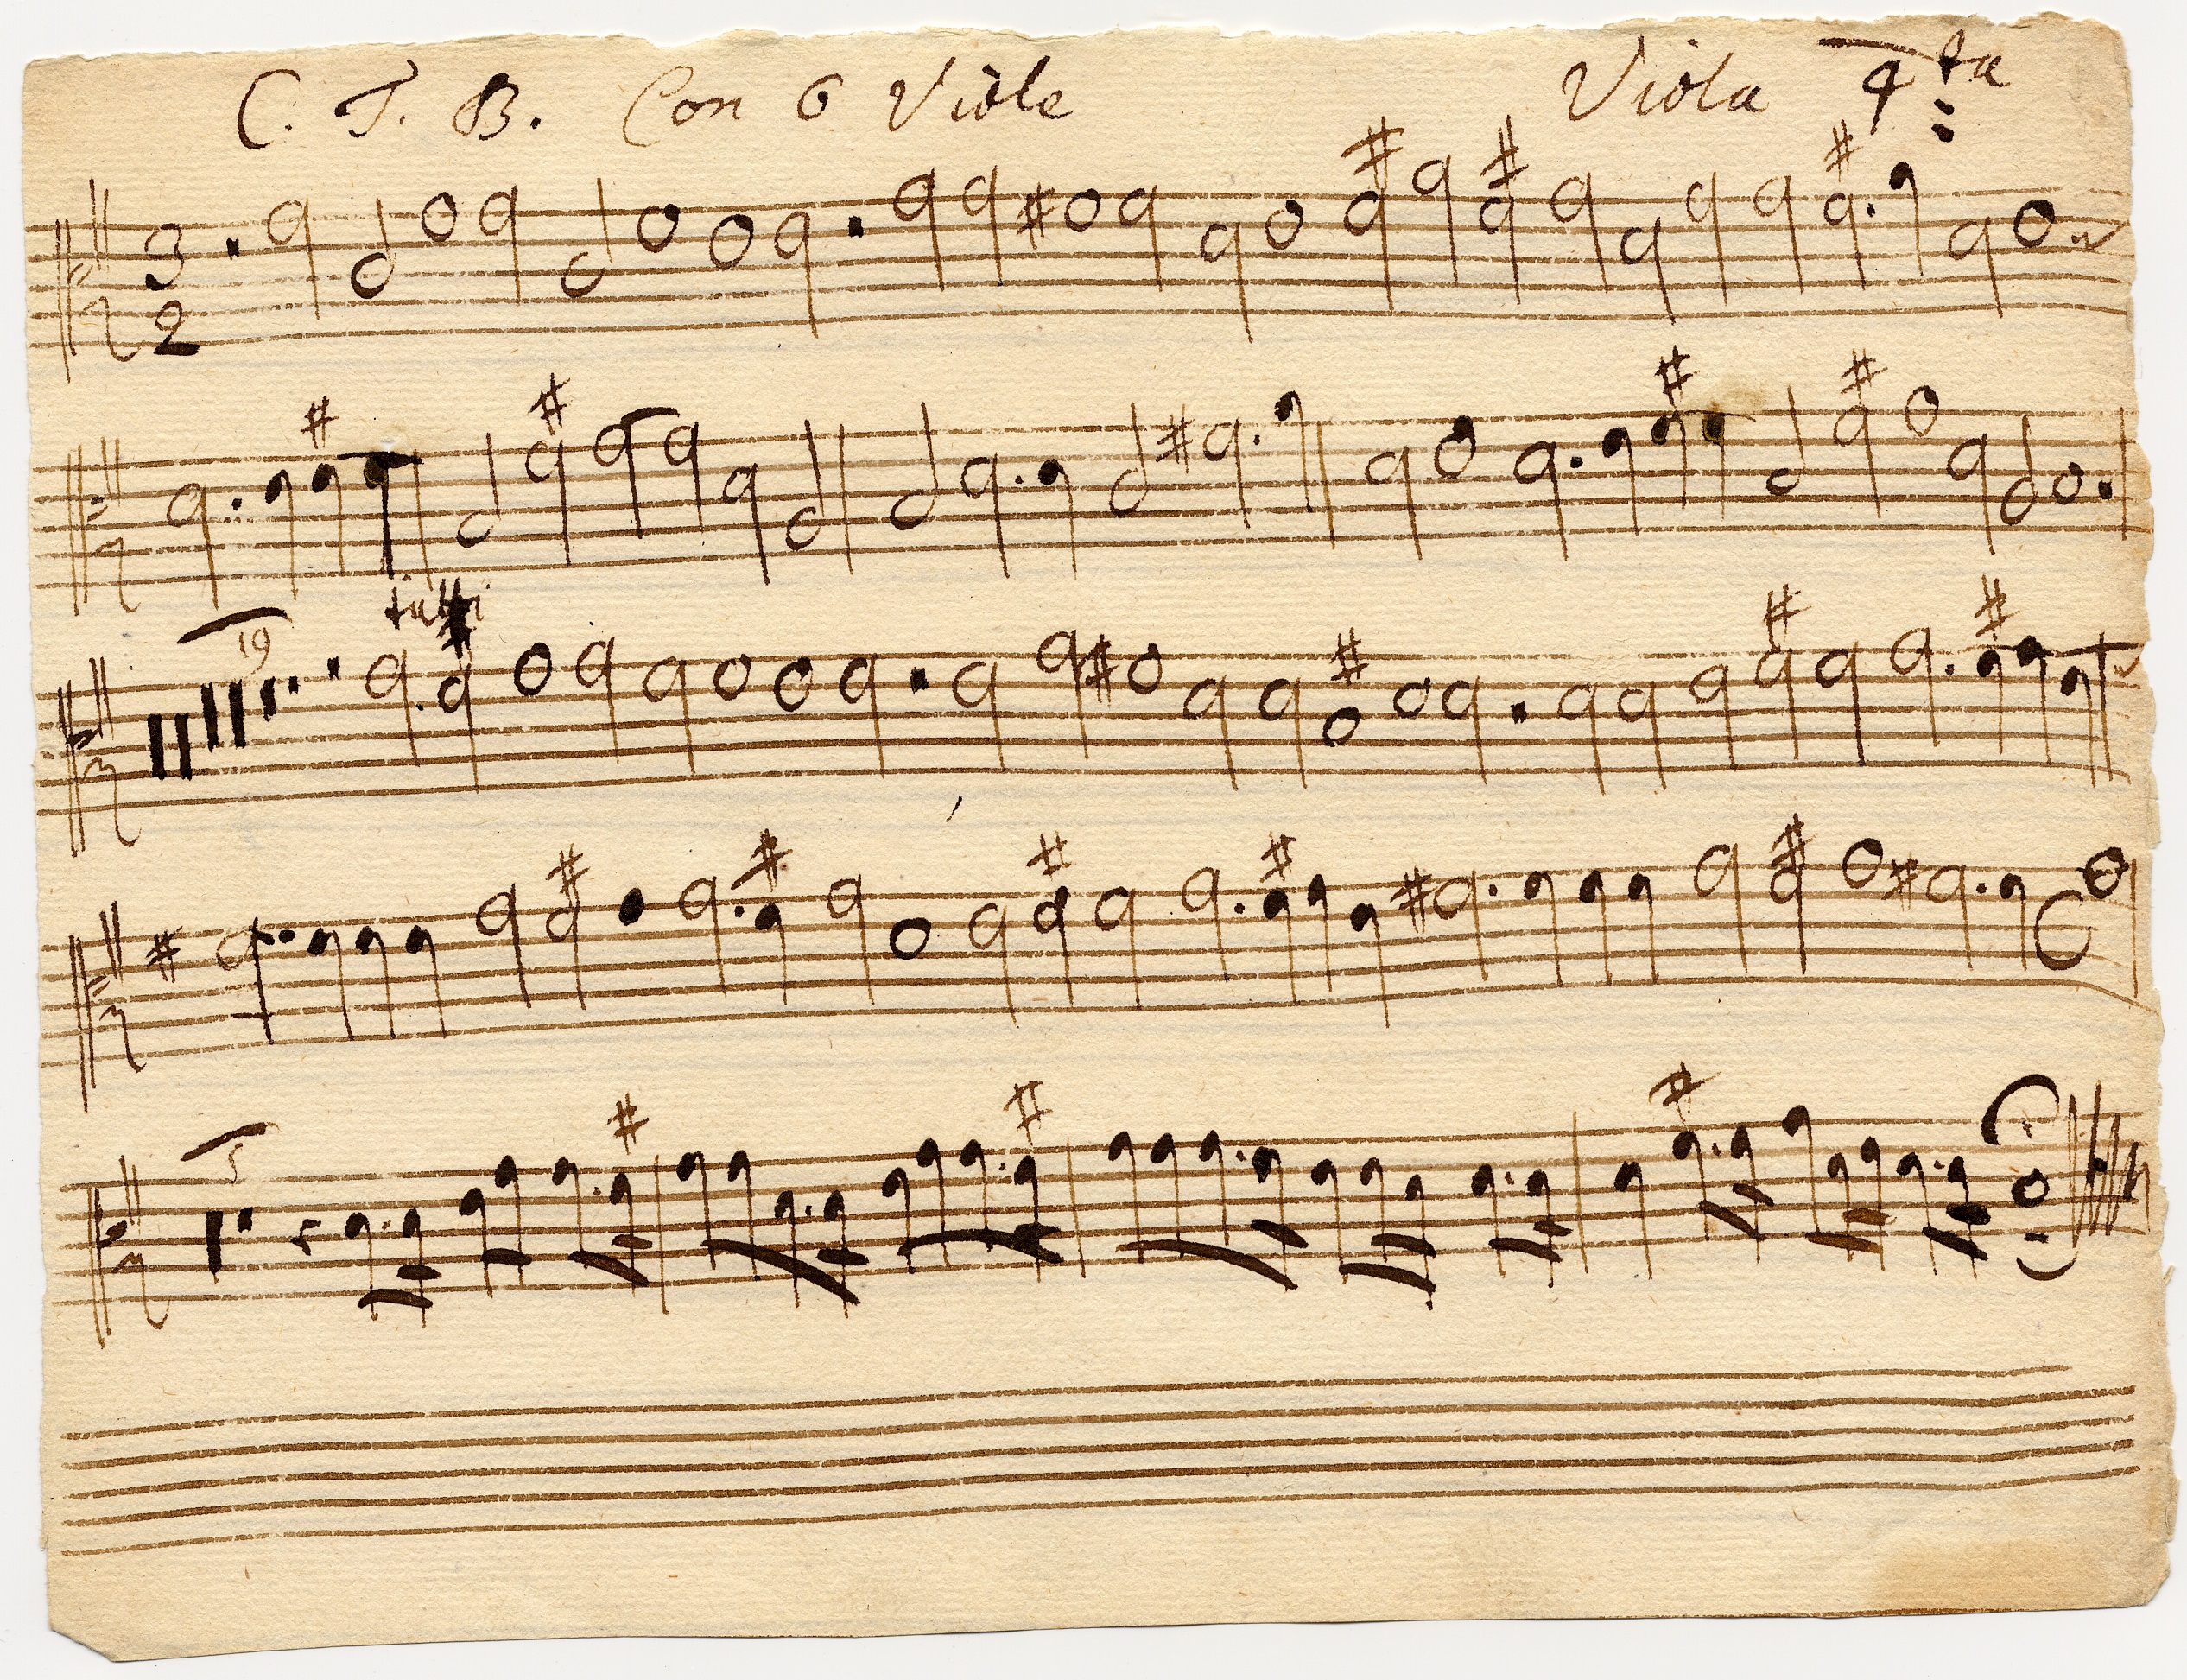 C. T. B. Con 6 Viole Viola 4ta
3
2
tutti
19
5